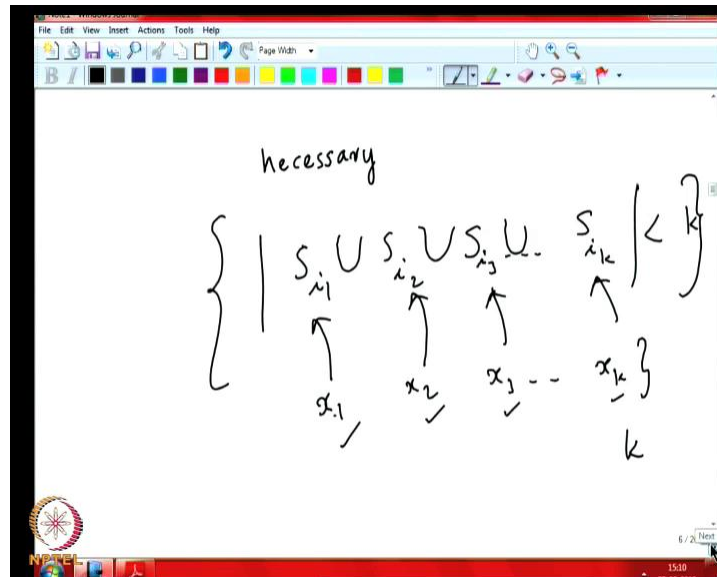 File Edit View Insert Actions Tools Help
Page Width
B I
necessary
{ | S_{i_1} ∪ S_{i_2} ∪ S_{i_3} ∪ -- S_{i_k} | < k }
x_1 x_2 x_3 -- x_k }
k
6 / 2
Next
NPTEL
15:10